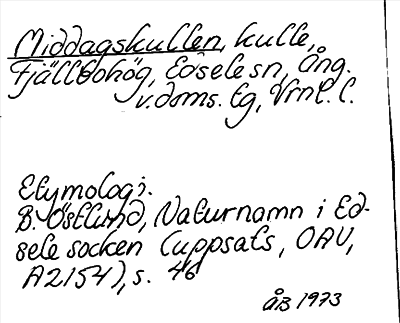 Middagskullen, kulle,
Fjällbohög, Edselesn, Ång.
v.doms. Eg, Vrnl. l.
Etymologi.
B. Östlund, Naturnamn i Ed-
sele socken (uppsats, OAU,
A2154), s. 46
ÅB 1973